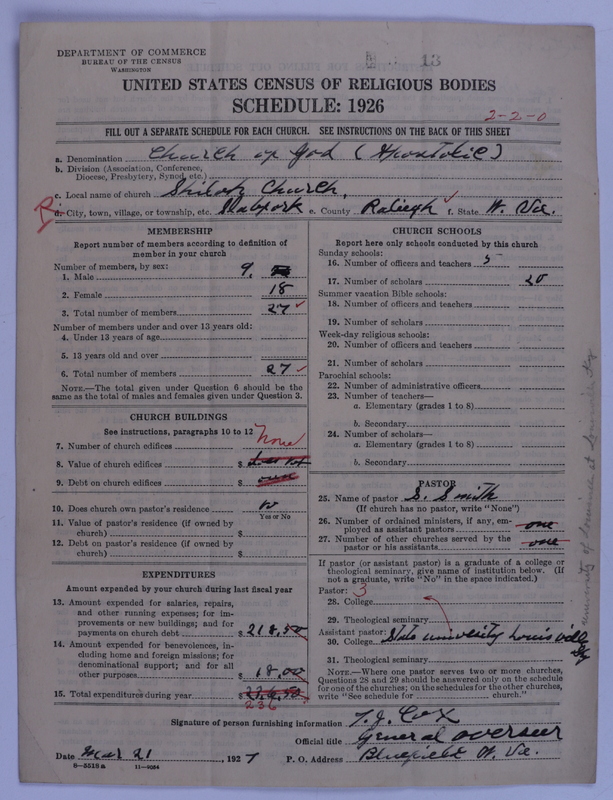 DEPARTMENT OF COMMERCE
BUREAU OF THE CENSUS
WASHINGTON
13
UNITED STATES CENSUS OF RELIGIOUS BODIES
SCHEDULE: 1926
2-2-0
FILL OUT A SEPARATE SCHEDULE FOR EACH CHURCH. SEE INSTRUCTIONS ON THE BACK OF THIS SHEET
a. Denomination Church of God (Apostolic)
b. Division (Association, Conference,
Diocese, Presbytery, Synod, etc.)
c. Local name of church Shiloh Church,
d. City, town, village, or township, etc. Slabfork e. County Raliegh f. State W. Va.
MEMBERSHIP
Report number of members according to definition of
member in your church
Number of members, by sex:
1. Male 9
2. Female 18
3. Total number of members 27
Number of members under and over 13 years old:
4. Under 13 years of age
5. 13 years old and over
6. Total number of members 27
NOTE.—The total given under Question 6 should be the
same as the total of males and females given under Question 3.
CHURCH BUILDINGS
See instructions, paragraphs 10 to 12
7. Number of church edifices none
8. Value of church edifices $
9. Debt on church edifices $
10. Does church own pastor's residence no
Yes or No
11. Value of pastor's residence (if owned by
church) $
12. Debt on pastor's residence (if owned by
church) $
EXPENDITURES
Amount expended by your church during last fiscal year
13. Amount expended for salaries, repairs,
and other running expenses; for im-
provements or new buildings; and for
payments on church debt $218.50
14. Amount expended for benevolences, in-
cluding home and foreign missions; for
denominational support; and for all
other purposes 18.00
15. Total expenditures during year $
236
CHURCH SCHOOLS
Report here only schools conducted by this church
Sunday schools:
16. Number of officers and teachers 5
17. Number of scholars 20
Summer vacation Bible schools:
18. Number of officers and teachers
19. Number of scholars
Week-day religious schools:
20. Number of officers and teachers
21. Number of scholars
Parochial schools:
22. Number of administrative officers
23. Number of teachers—
a. Elementary (grades 1 to 8)
b. Secondary
24. Number of scholars—
a. Elementary (grades 1 to 8)
b. Secondary
PASTOR
25. Name of pastor S. Smith
(If church has no pastor, write "None")
26. Number of ordained ministers, if any, em-
ployed as assistant pastors one
27. Number of other churches served by the
pastor or his assistants one
If pastor (or assistant pastor) is a graduate of a college or
theological seminary, give name of institution below. (If
not a graduate, write "No" in the space indicated.)
Pastor: 3
28. College
29. Theological seminary
Assistant pastor:
30. College State university Louisville Ky
31. Theological seminary
NOTE.—Where one pastor serves two or more churches,
Questions 28 and 29 should be answered only on the schedule
for one of the churches; on the schedules for the other churches,
write "See schedule for church."
university of Louisville at Louisville Ky
Signature of person furnishing information T. J. Cox
Official title General overseer
Date Mar 21, 1927 P. O. Address Bluefield W. Va.
8—5518a 11—9054